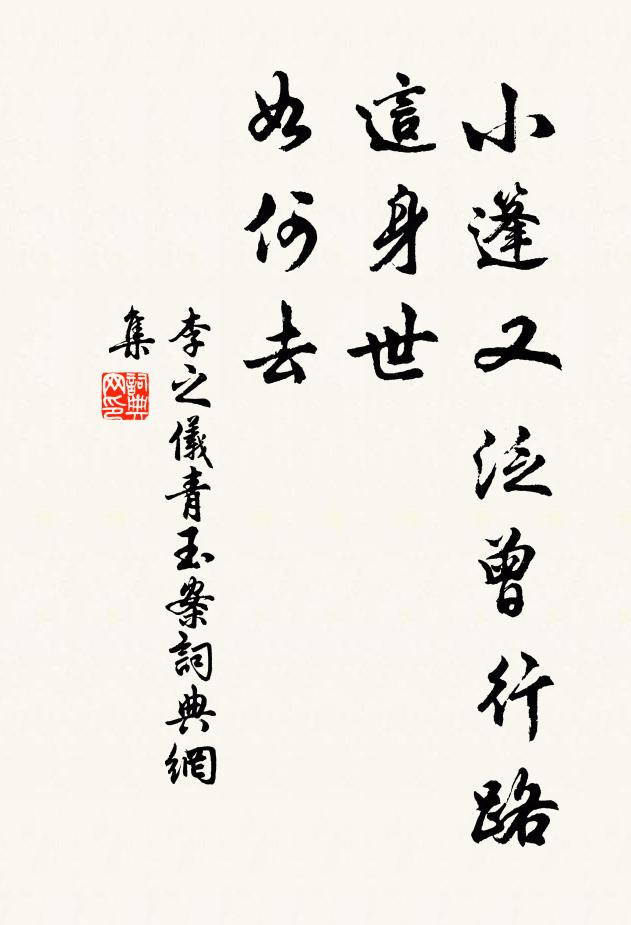 小蓬又泛曾行路
這身世
如何去
李之儀青玉案詞典網
集
詞典
网印